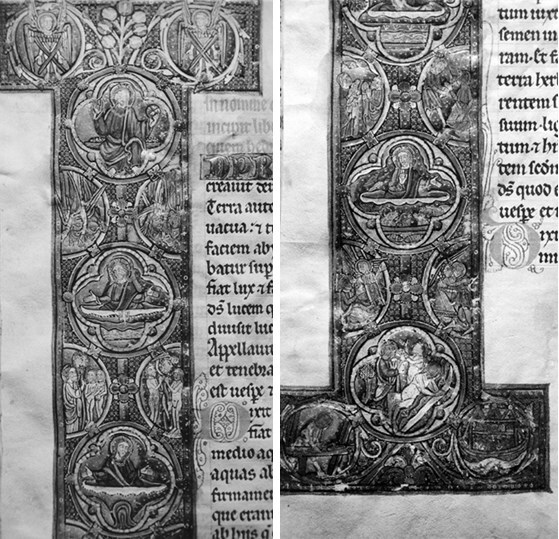 in nomine
incipit lib
creauit deu
Terra aute
uacua: ⁊ t
faciem aby
batur sup
fiat lux ⁊ f
ds lucem q
diuisit luc
Appellauit
et tenebra
est uesp ⁊
Dixit
fiat
medio aq
aquas ab
firmame
que eran
ab hiis q
tum iuxt
semen in
ram. Et fa
terra herb
rentem s
suum. lig
tum ⁊ h
tem
ds quod e
uespe et
mi